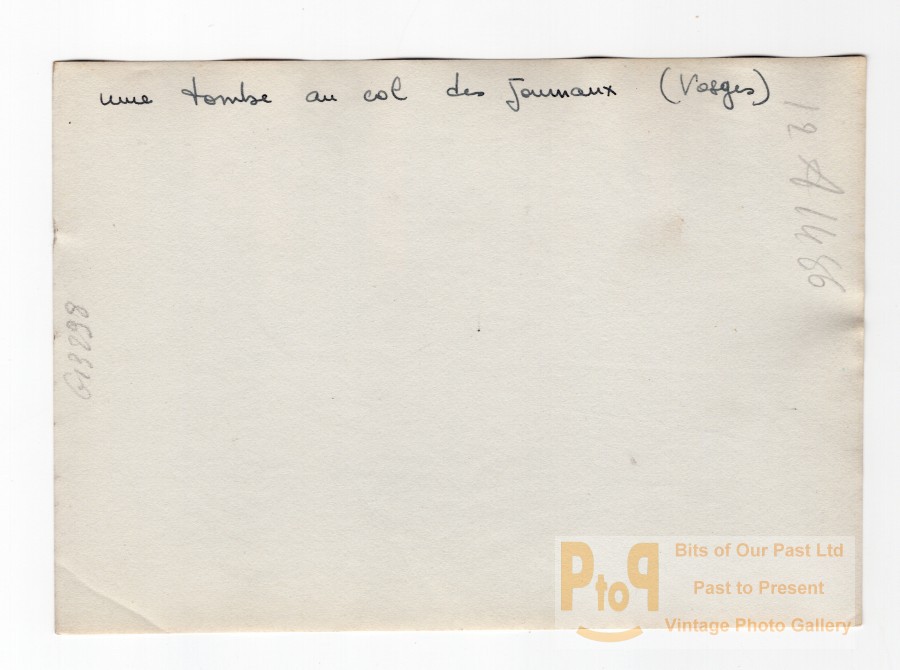 une tombe au col des Journaux (Vosges)
12 A 1486
G13898
PtoP
Bits of Our Past Ltd
Past to Present
Vintage Photo Gallery